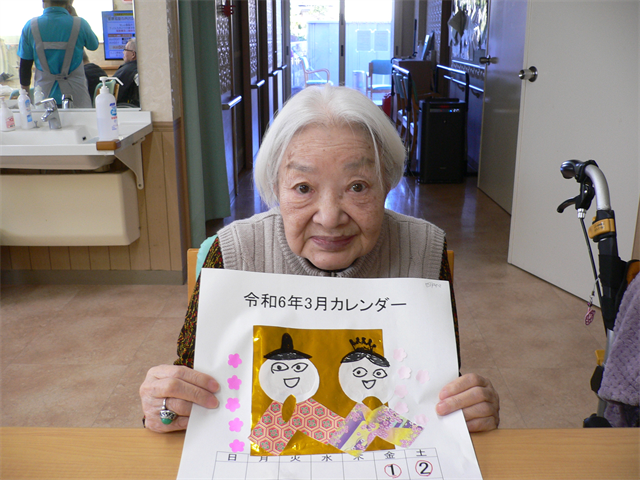 令和6年3月カレンダー
日 月 火 水 木 金 土
1 2